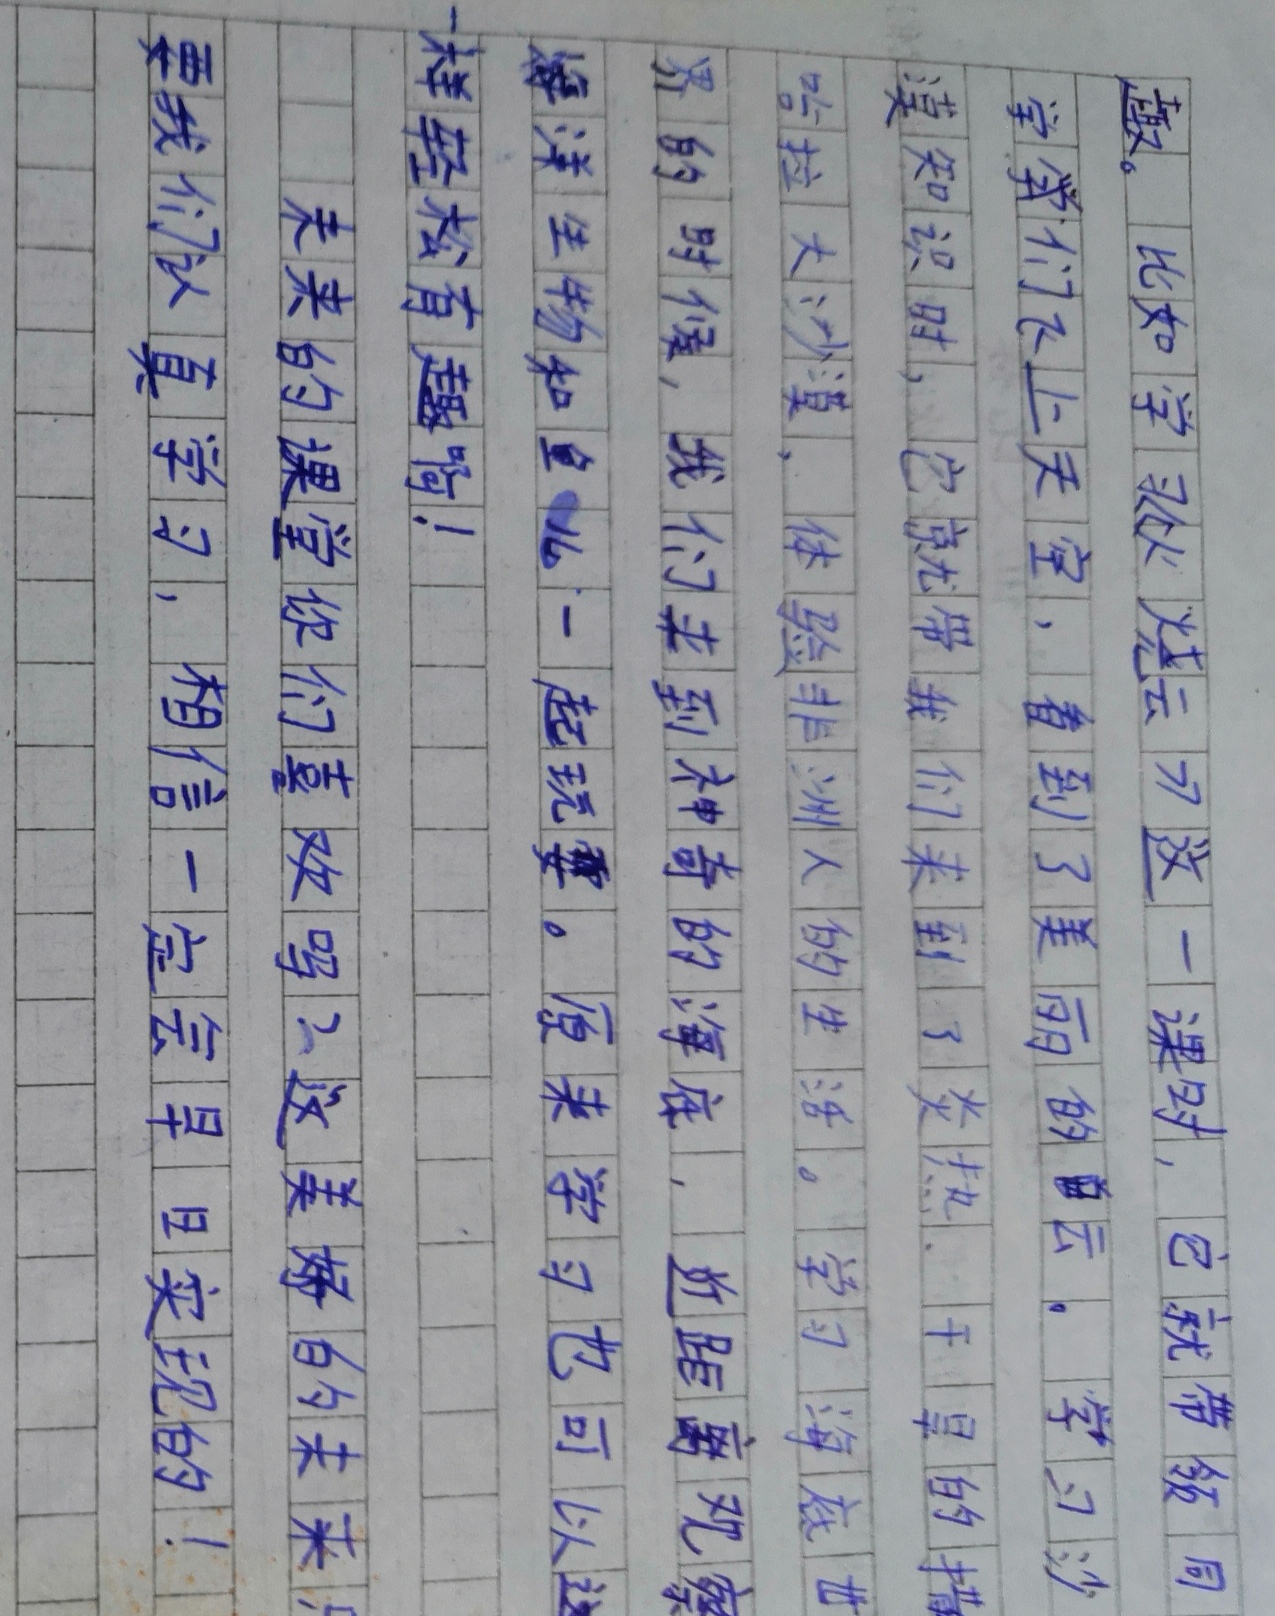 趣。比如学习《火烧云》这一课时,它就带领同
学们飞上天空,看到了美丽的白云。学习沙
漠知识时,它就带我们来到了炎热、干旱的撒
哈拉大沙漠,体验非洲人的生活。学习海底世
界的时候,我们来到神奇的海底,近距离观察
海洋生物和鱼儿一起玩耍。原来学习也可以这
样轻松有趣啊!
未来的课堂你们喜欢吗?这美好的未来只
要我们认真学习,相信一定会早日实现的!